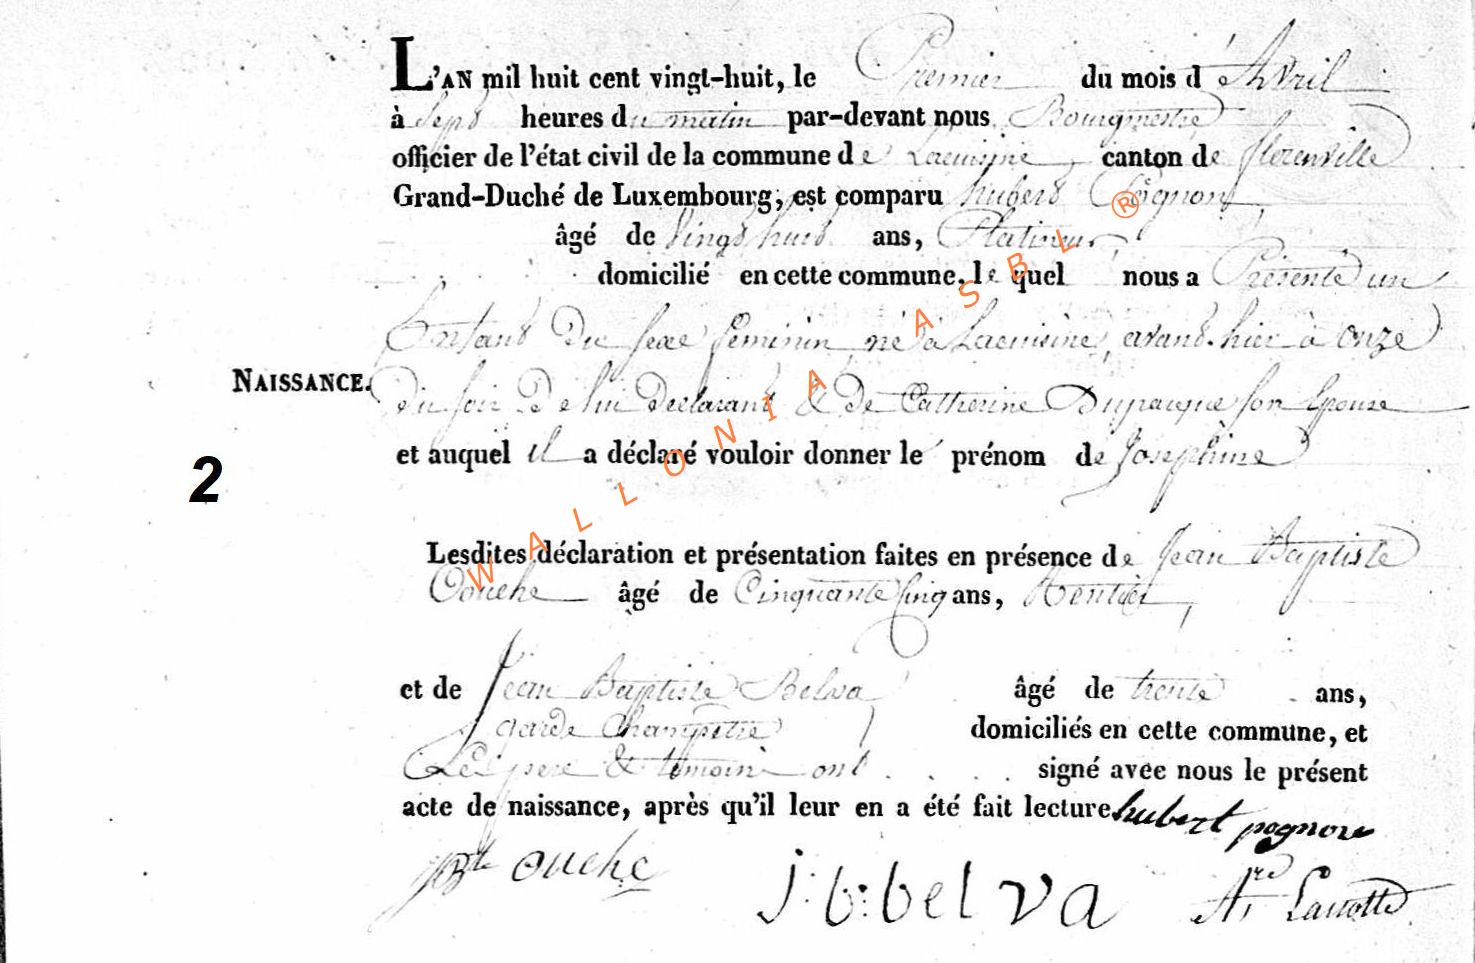 L'AN mil huit cent vingt-huit, le Premier du mois d'Avril
à Sept heures du matin par-devant nous Bourgmestre
officier de l'état civil de la commune de Lacuisine, canton de florenville
Grand-Duché de Luxembourg, est comparu hubert Pognon
âgé de Vingt huit ans, Platineur,
domicilié en cette commune, le quel nous a Présenté un
Enfant Du sexe feminin né à Lacuisine, avant-hier à onze
NAISSANCE. Du soir De lui Declarant & de Catherine Duparque son Epouse
et auquel il a déclaré vouloir donner le prénom de Josephine
2
Lesdites déclaration et présentation faites en présence de Jean Baptiste
Ouche âgé de Cinquante Cinq ans, Rentier,
et de Jean Baptiste Belva âgé de trente ans,
garde Champetre, domiciliés en cette commune, et
Le père & temoins ont signé avec nous le présent
acte de naissance, après qu'il leur en a été fait lecture hubert pognon
ouche
j:b:belva
WALLONIA ASBL ®